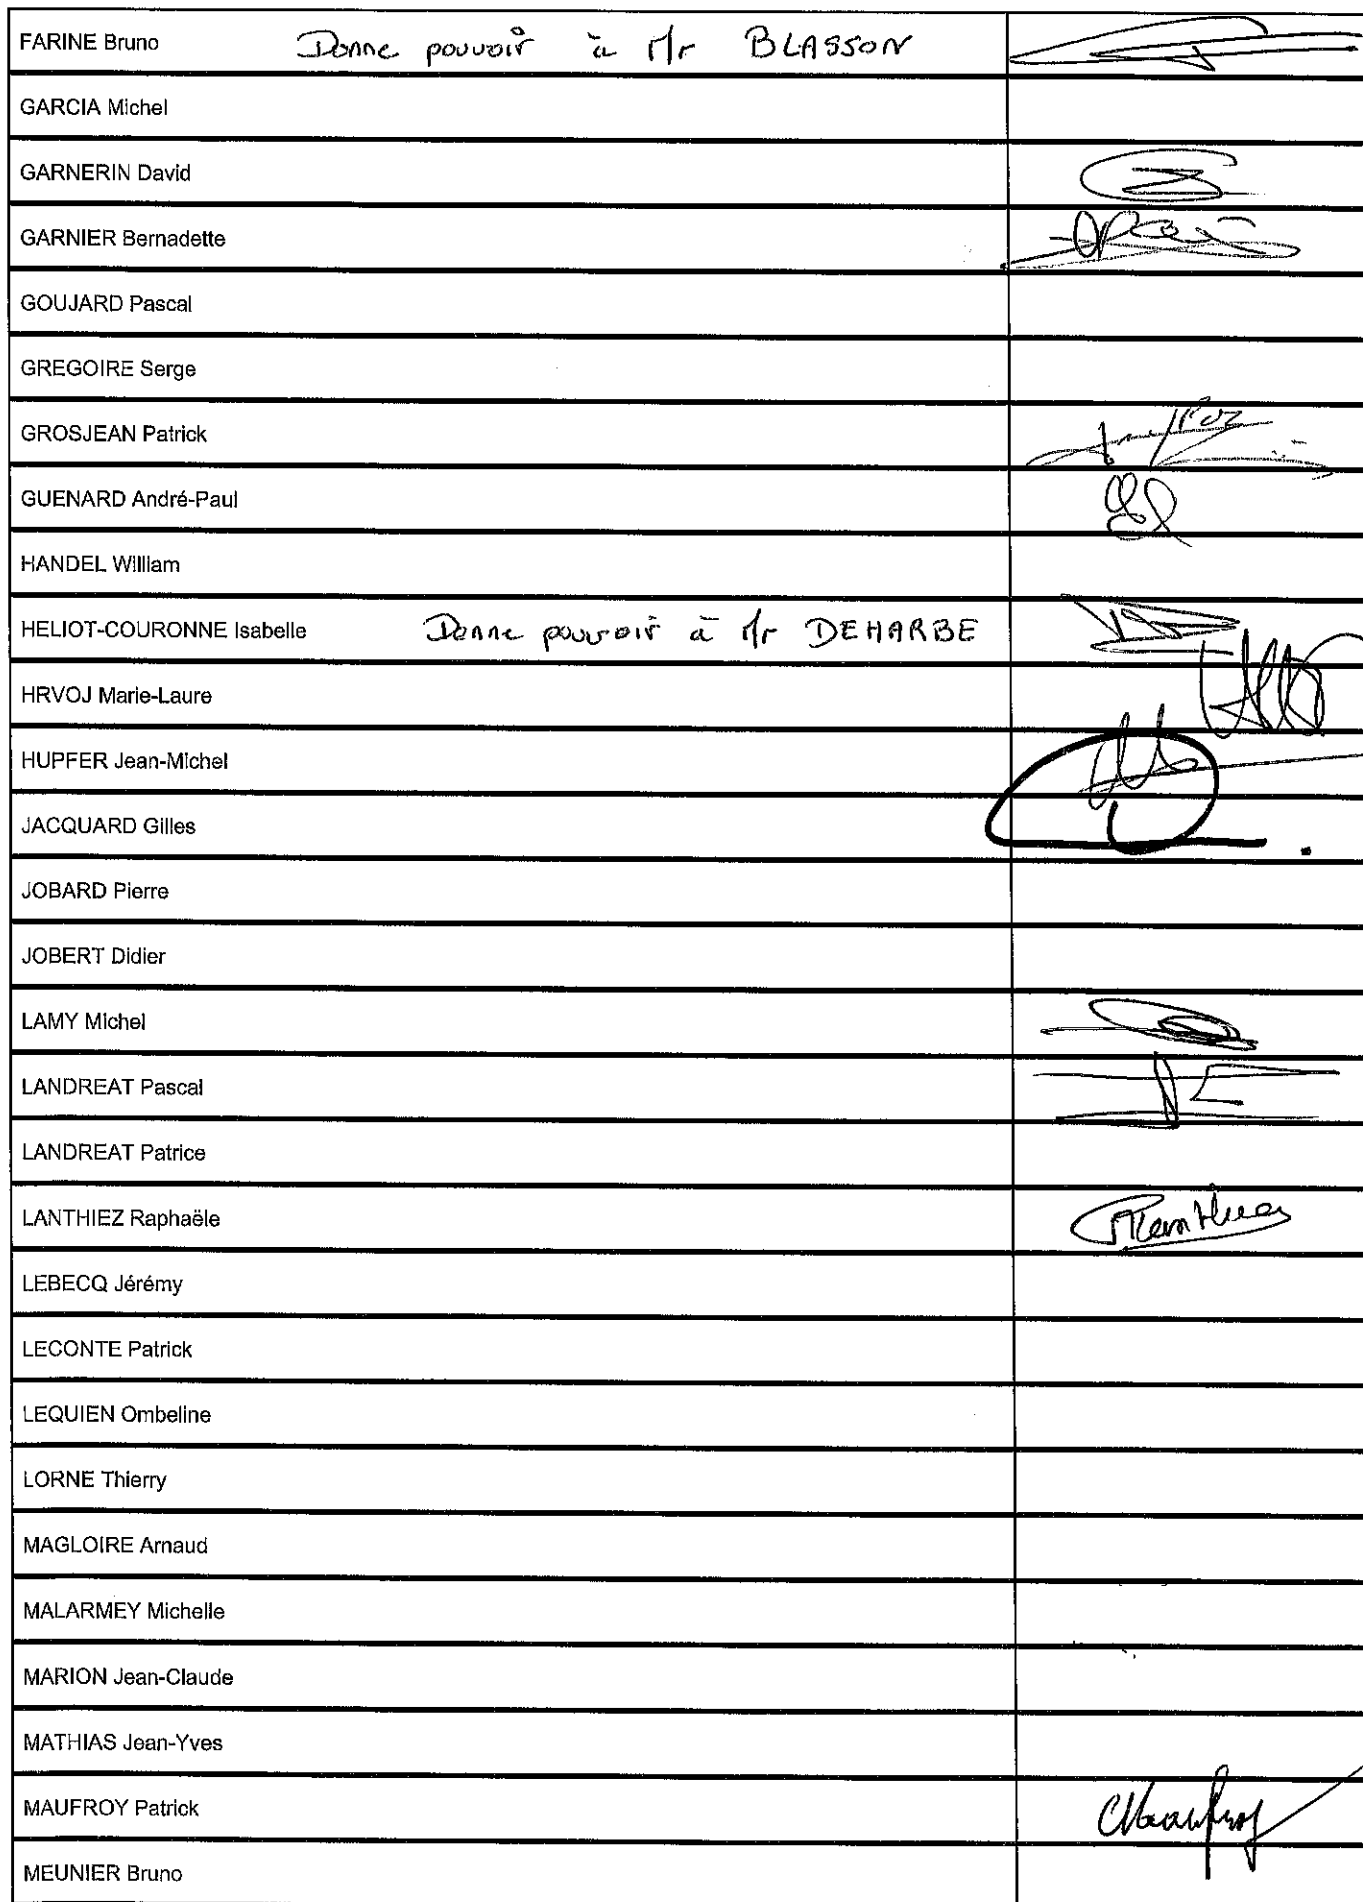 FARINE Bruno Donne pouvoir à Mr BLASSON
GARCIA Michel
GARNERIN David
GARNIER Bernadette
GOUJARD Pascal
GREGOIRE Serge
GROSJEAN Patrick
GUENARD André-Paul
HANDEL William
HELIOT-COURONNE Isabelle Donne pouvoir à Mr DEHARBE
HRVOJ Marie-Laure
HUPFER Jean-Michel
JACQUARD Gilles
JOBARD Pierre
JOBERT Didier
LAMY Michel
LANDREAT Pascal
LANDREAT Patrice
LANTHIEZ Raphaële
LEBECQ Jérémy
LECONTE Patrick
LEQUIEN Ombeline
LORNE Thierry
MAGLOIRE Arnaud
MALARMEY Michelle
MARION Jean-Claude
MATHIAS Jean-Yves
MAUFROY Patrick
MEUNIER Bruno